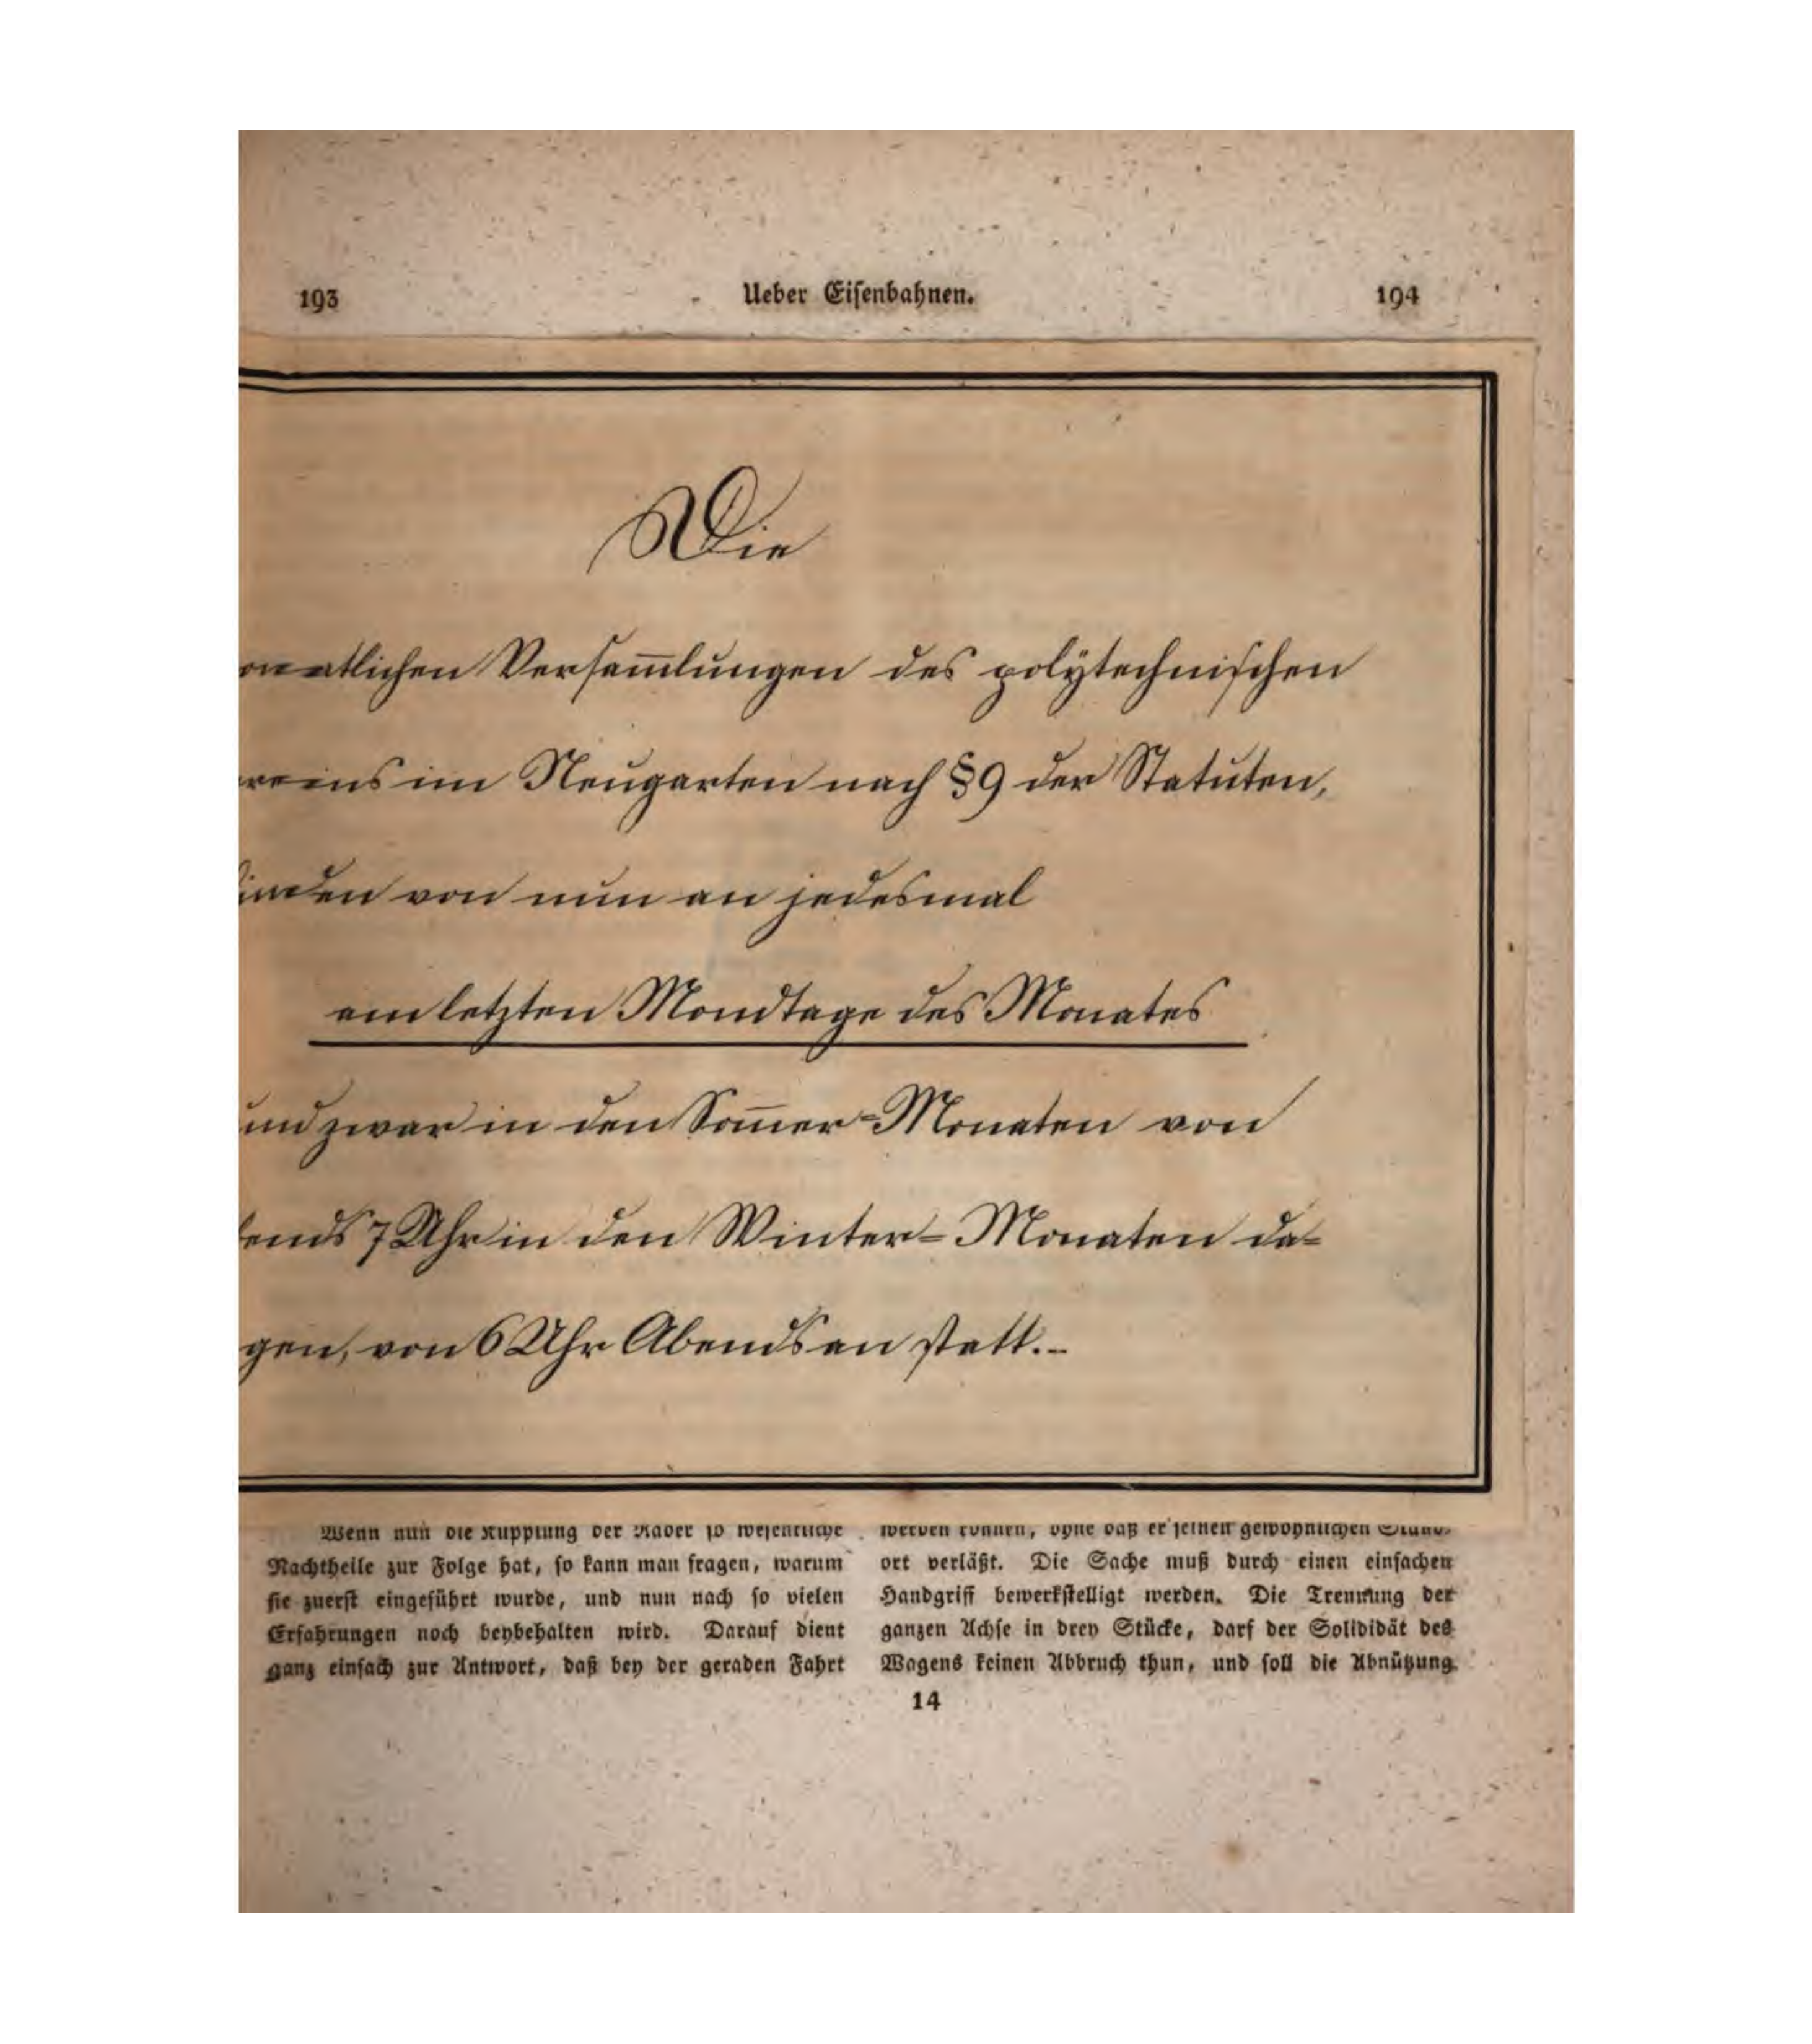 193 Ueber Eisenbahnen. 194
Die
onatlichen Versam̅lungen des polÿtechnischen
reins im Neugarten nach § 9 der Statuten,
inden von nun an jedesmal
am letzten Mondtage des Monates
und zwar in den Som̅er-Monaten von
ends 7 Uhr in den Winter-Monaten da-
gen, von 6 Uhr Abends an statt.-
Wenn nun die Kupplung der Räder so wesentliche
Nachtheile zur Folge hat, so kann man fragen, warum
sie zuerst eingeführt wurde, und nun nach so vielen
Erfahrungen noch beybehalten wird. Darauf dient
ganz einfach zur Antwort, daß bey der geraden Fahrt
werden können, ohne daß er seinen gewöhnlichen Stand-
ort verläßt. Die Sache muß durch einen einfachen
Handgriff bewerkstelligt werden. Die Trennung der
ganzen Achse in drey Stücke, darf der Solididät des
Wagens keinen Abbruch thun, und soll die Abnützung
14